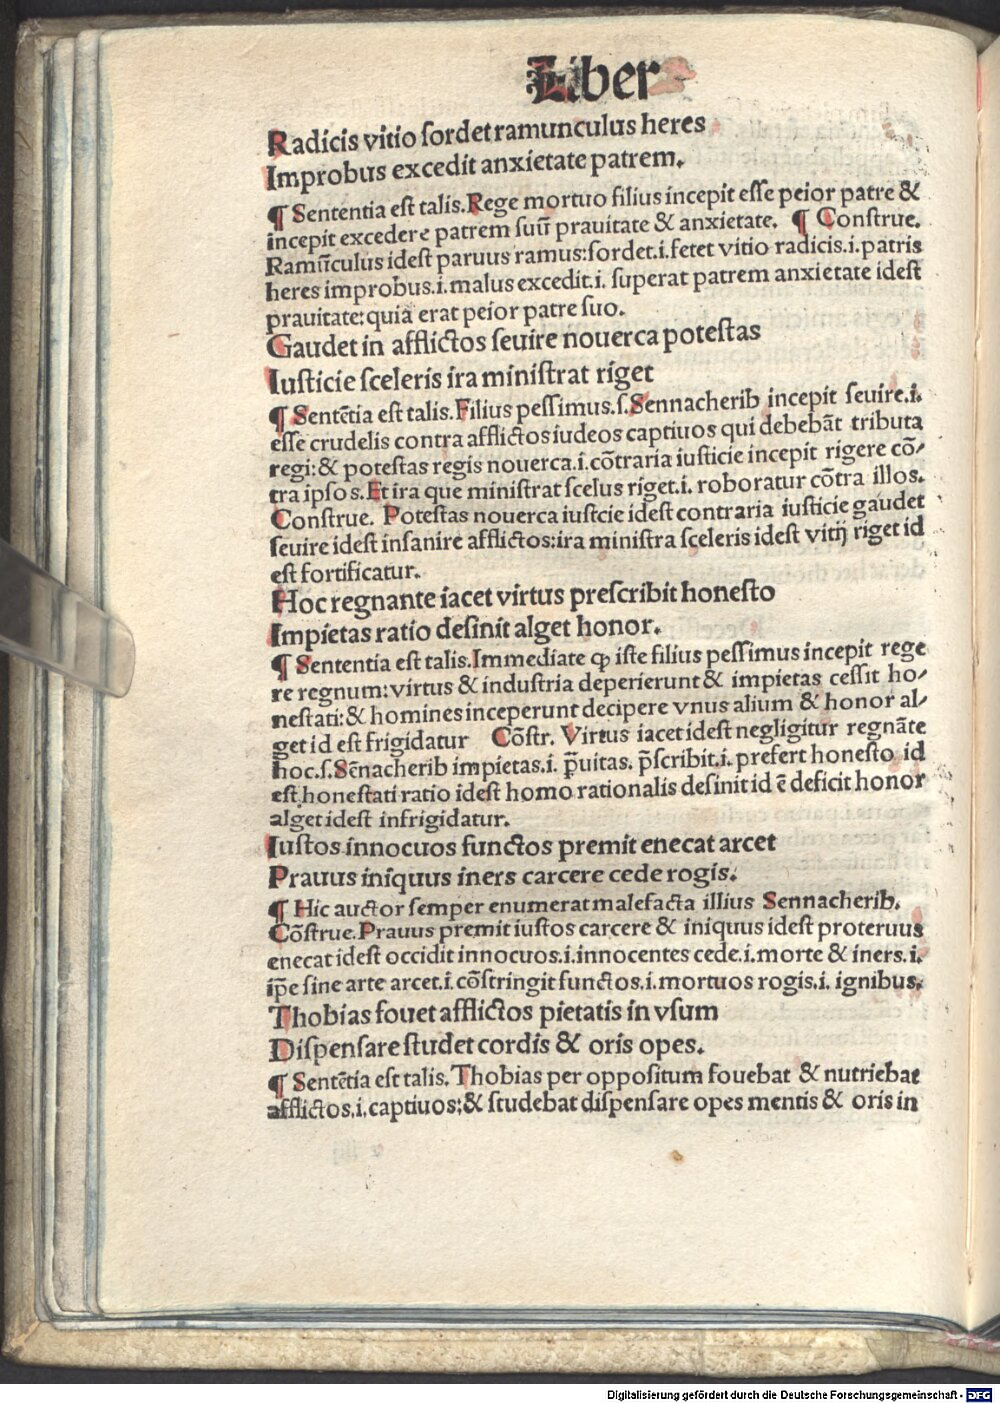 Liber
Radicis vitio ſordet ramunculus heres
Improbus excedit anxietate patrem.
¶ Sententia eſt talis. Rege mortuo filius incepit eſſe peior patre &
incepit excedere patrem ſuū prauitate & anxietate. ¶ Conſtrue.
Ramūculus ideſt paruus ramus:ſordet.i.fetet vitio radicis.i.patris
heres improbus.i.malus excedit.i. ſuperat patrem anxietate ideſt
prauitate:quia erat peior patre ſuo.
Gaudet in afflictos ſeuire nouerca poteſtas
Iuſticie ſceleris ira miniſtrat riget
¶ Sentētia eſt talis. Filius peſſimus.ſ.Sennacherib incepit ſeuire.i.
eſſe crudelis contra afflictos iudeos captiuos qui debebāt tributa
regi:& poteſtas regis nouerca.i.cōtraria iuſticie incepit rigere cō⸗
tra ipſos. Et ira que miniſtrat ſcelus riget.i. roboratur cōtra illos.
Conſtrue. Poteſtas nouerca iuſtcie ideſt contraria iuſticie gaudet
ſeuire ideſt inſanire afflictos:ira miniſtra ſceleris ideſt vitij riget id
eſt fortificatur.
Hoc regnante iacet virtus preſcribit honeſto
Impietas ratio deſinit alget honor.
¶ Sententia eſt talis. Immediate ꝙ iſte filius peſſimus incepit rege
re regnum:virtus & induſtria deperierunt & impietas ceſſit ho⸗
neſtati:& homines inceperunt decipere vnus alium & honor al⸗
get id eſt frigidatur Cōſtr. Virtus iacet ideſt negligitur regnāte
hoc.ſ.Sēnacherib impietas.i. p̄uitas. p̄ſcribit.i. prefert honeſto id
eſt honeſtati ratio ideſt homo rationalis deſinit id ē deficit honor
alget ideſt infrigidatur.
Iuſtos innocuos functos premit enecat arcet
Prauus iniquus iners carcere cede rogis.
¶ Hic auctor ſemper enumerat malefacta illius Sennacherib.
Cōſtrue. Prauus premit iuſtos carcere & iniquus ideſt proteruus
enecat ideſt occidit innocuos.i.innocentes cede.i.morte & iners.i.
ip̄e ſine arte arcet.i cōſtringit functos.i.mortuos rogis.i. ignibus.
Thobias fouet afflictos pietatis in vſum
Diſpenſare ſtudet cordis & oris opes.
¶ Sentētia eſt talis. Thobias per oppoſitum fouebat & nutriebat
afflictos.i.captiuos:& ſtudebat diſpenſare opes mentis & oris in
Digitalisierung gefördert durch die Deutsche Forschungsgemeinschaft - DFG